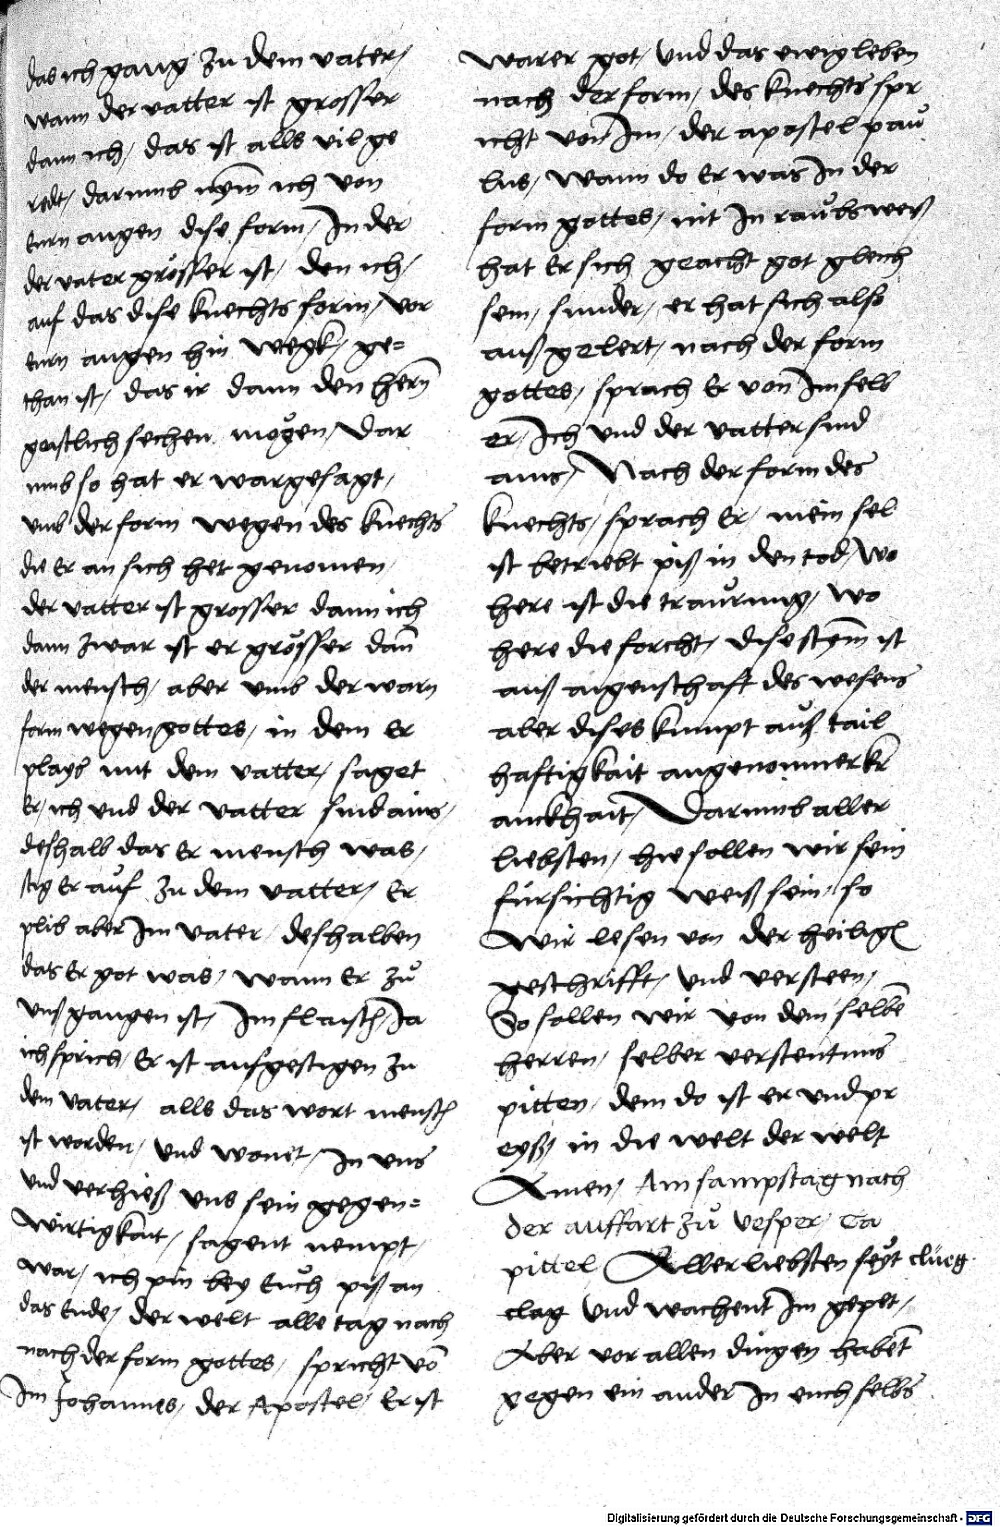 das ich gang zu dem vater/
wann der vatter ist grosser
dann ich/ das ist alls vil ge
redt/ darumb nym ich von
eurn augen dise form/ In der
der vater grösser ist/ den ich/
auf das dise knechts form/ vor
eurn augen hin wegk/ ge=
than ist/ das ir dann den hern
geistlich sechen mogen/ Dar
umb so hat er war gesagt/
umb der form wegen des knechts
die Er an sich het genomen/
der vatter ist grosser dann ich
dann zwar ist er grösser dan̄
der mensch/ aber umb der warn
form wegen gottes/ in dem Er
playb mit dem vatter/ saget
Er/ ich und der vatter sind ains/
deshalb das Er mensch was/
stig Er auf zu dem vatter/ Er
plib aber Im vater/ deshalben
das Er got was/ wann Er zů
uns gangen ist/ Im flaisch/ Ja
ich sprich/ Er ist aufgestigen zu
dem vater/ alls das wort mensch
ist worden/ und wonet/ In uns
und verhieß uns sein gegen=
wirtigkait/ sagent nempt/
war/ ich pin bey Euch piß an
das Ende/ der welt alle tag nach
nach der form gottes/ spricht vō
Im Johannes/ der Apostel/ Er ist
warer got/ und das ewig leben
nach der form/ des knechts spr
icht von Im/ der apostel pau
lus/ wann do Er was In der
form gottes/ nit In raubs weys
hat Er sich geacht got gleich
sein/ sunder/ er hat sich also
auß gelert/ nach der form
gottes/ sprach Er von Im selb
er/ Ich und der vatter sind
ains/ Nach der form des
knechts/ sprach Er/ mein sel
ist betriebt piß in den tod/ wo
here ist die traurung/ wo
here die forcht/ dise stym ist
auß aigenschaft des wesens
aber dises kumpt auß tail
haftigkait angenomner kr
anckhait/ Darumb aller
liebsten/ hie sollen wir sein
fürsichtig weiß sein/ so
wir lesen von der heilig
geschrifft/ und versteen/
So sollen wir von dem selbē
herren/ selber verstentnus
pitten/ dem do ist er und pr
eyß/ in die welt der welt
Amen/ Am sampstag nach
der auffart zů vesper/ Ca
pittel Allerliebsten seyt clüeg
clag und wachent Im gepet/
Aber vor allen dingen habent
gegen ein ander In euch selbs
Digitalisierung gefördert durch die Deutsche Forschungsgemeinschaft - DFG